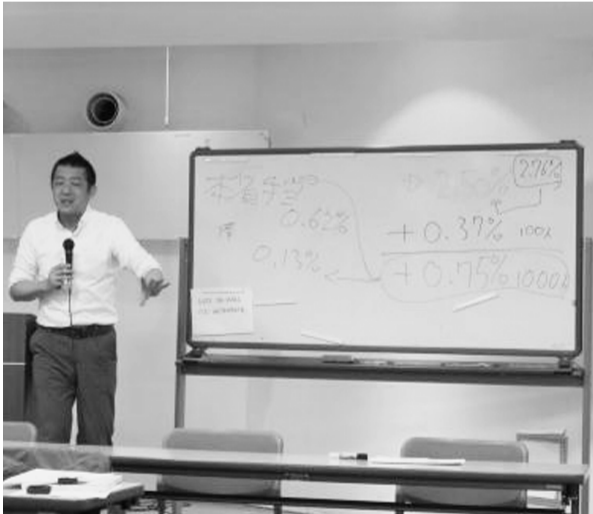 本省手当
0.62%
0.13%
2.50%
2.76%
+0.37% 100人
+0.75% 1000人